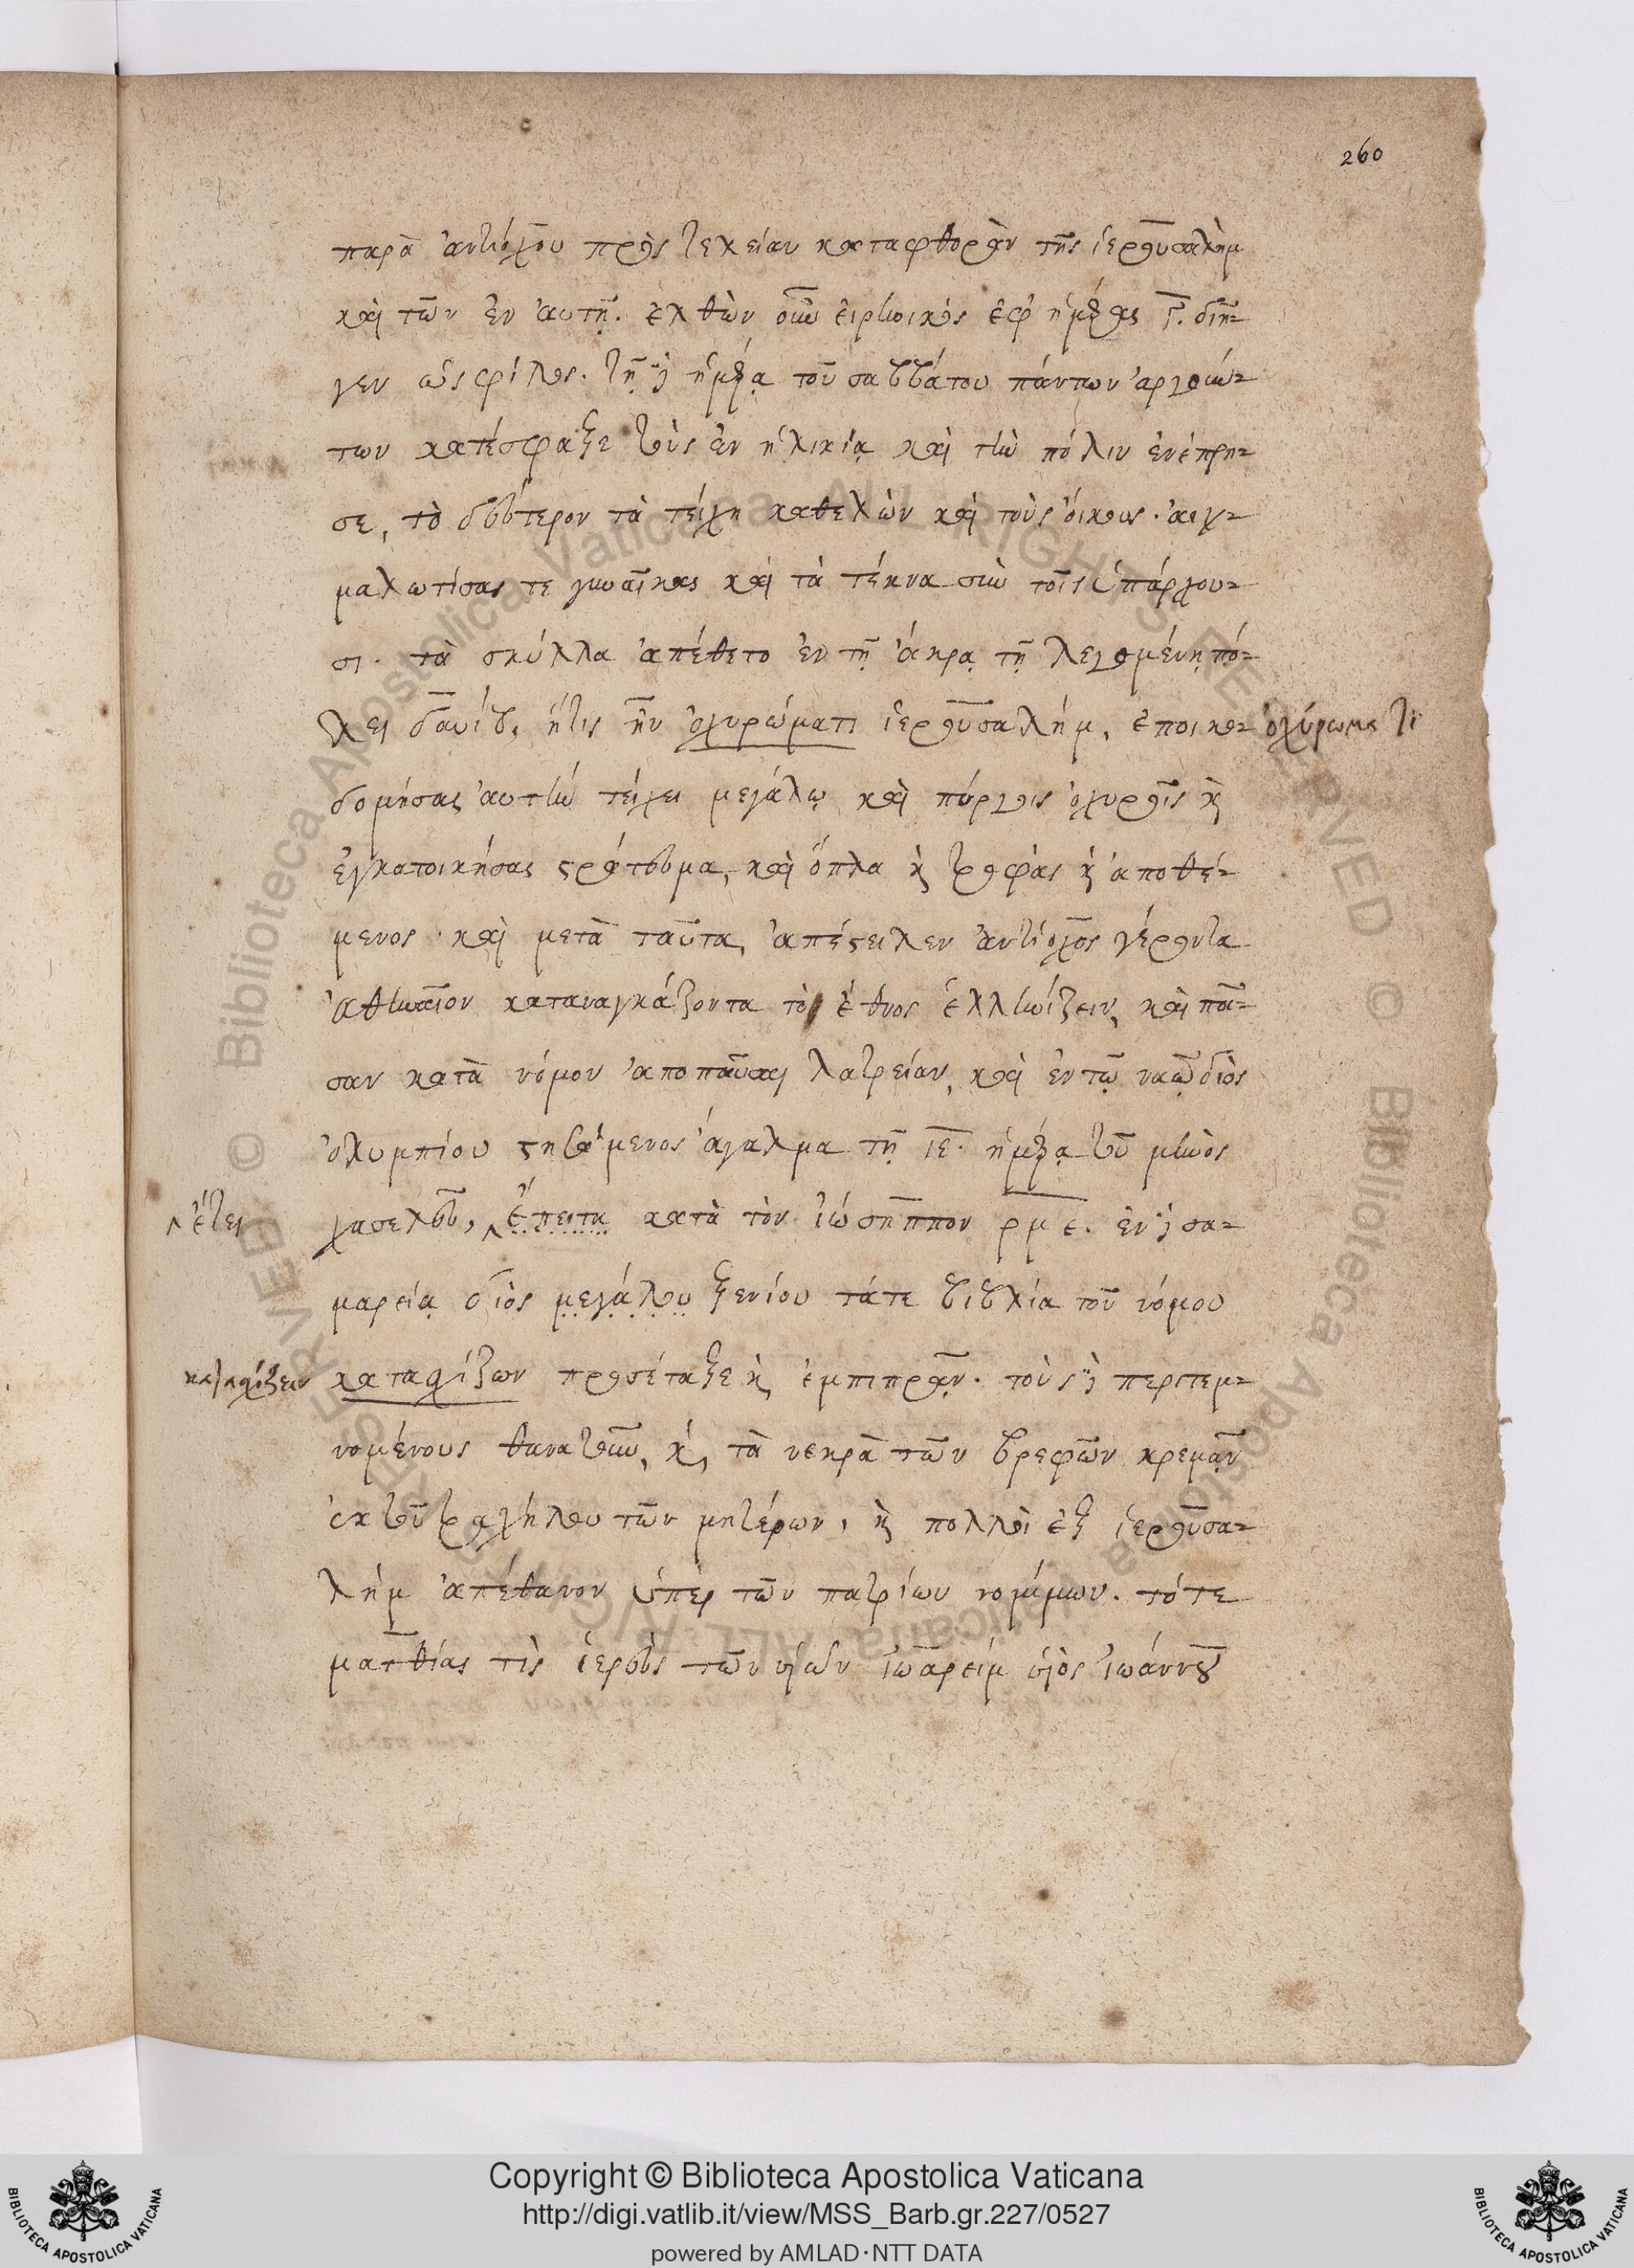 260
παρὰ ἀντιόχου πρὸς τελείαν καταφθορὰν τῆς ἱερουσαλὴμ
καὶ τῶν ἐν αὐτῇ. ἐλθὼν οὖν εἰρηνικὸς ἐφ ἡμέρας γ. διῆ-
γεν ὡς φίλος. τῇ δὲ ἡμέρᾳ τοῦ σαββάτου πάντων ἀργούν-
των κατέσφαξε τοὺς ἐν ἡλικίᾳ καὶ τὴν πόλιν ἐνέπρη-
σε, τὸ δεύτερον τὰ τείχη καθελὼν καὶ τοὺς οἴκους. αἰχ-
μαλωτίσας τε γυναῖκας καὶ τὰ τέκνα σὺν τοῖς ὑπάρχου-
σι. τὰ σκύλλα ἀπέθετο ἐν τῇ ἄκρᾳ τῇ λεγομένῃ πό-
λει δαυίδ, ἥτις ἦν ὀχυρώματι ἱερουσαλήμ, ἐποικο-
ὀχύρωμά τι
δομήσας αὐτὴν τείχει μεγάλῳ καὶ πύργοις ὀχυροῖς κ
ἐγκατοικήσας στράτευμα, καὶ ὅπλα κ τροφὰς κ ἀποθέ-
μενος. καὶ μετὰ ταῦτα, ἀπέστειλεν ἀντίοχος γέροντα
ἀθηναῖον καταναγκάζοντα τὸ ἔθνος ἑλληνίζειν, καὶ πᾶ-
σαν κατὰ νόμον ἀποπαῦσαι λατρείαν, καὶ ἐν τῷ ναῷ διὸς
ὀλυμπίου στησάμενος ἄγαλμα τῇ ιε. ἡμέρᾳ τοῦ μηνὸς
ἔτει
χασελεῦ, ἔπειτα κατὰ τὸν ἰώσηππον ρμε. ἐν δὲ σα-
μαρείᾳ διὸς μεγάλου ξενίου τά τε βιβλία τοῦ νόμου
κατασχίζειν
κατασχίζων προσέταξε κ ἐμπιπρᾶν. τοὺς δὲ περιτεμ-
νομένους θανατοῦν, κ, τὰ νεκρὰ τῶν βρεφῶν κρεμᾶν
ἐκ τοῦ τραχήλου τῶν μητέρων, κ πολλοὶ ἐξ ἱερουσα-
λὴμ ἀπέθανον ὑπὲρ τῶν πατρίων νομίμων. τότε
ματθίας τὶς ἱερεὺς τῶν υἱῶν ἰωαρεὶμ υἱὸς ἰωάννου
Copyright © Biblioteca Apostolica Vaticana
http://digi.vatlib.it/view/MSS_Barb.gr.227/0527
powered by AMLAD·NTT DATA
BIBLIOTECA APOSTOLICA VATICANA
BIBLIOTECA APOSTOLICA VATICANA